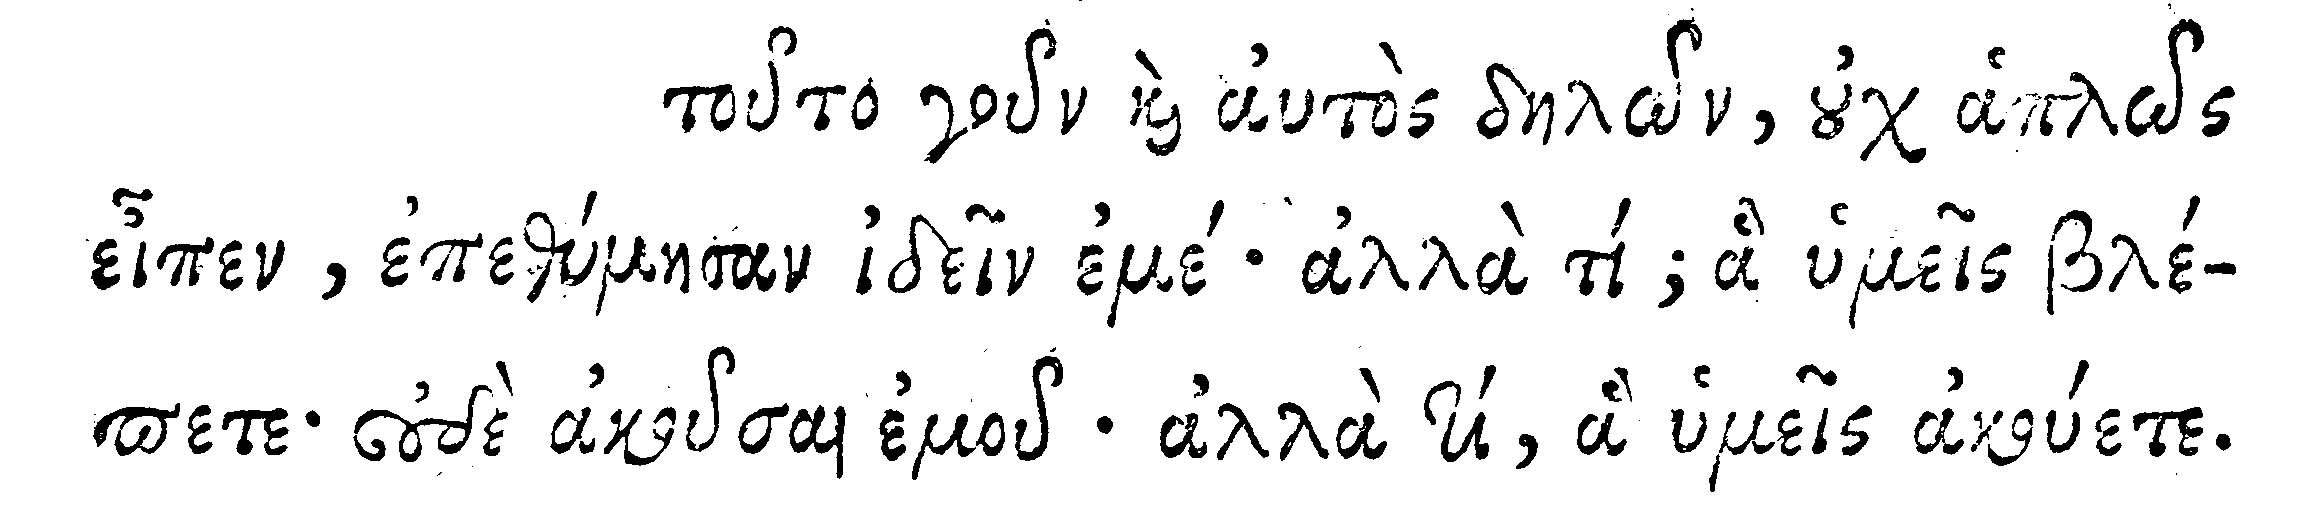 τοῦτο γοῦν καὶ αὐτὸς δηλῶν, οὐχ ἁπλῶς
εἶπεν, ἐπεθύμησαν ἰδεῖν ἐμέ· ἀλλὰ τί; ἃ ὑμεῖς βλέ-
πετε· οὐδὲ ἀκοῦσαι ἐμοῦ· ἀλλὰ τί, ἃ ὑμεῖς ἀκούετε.